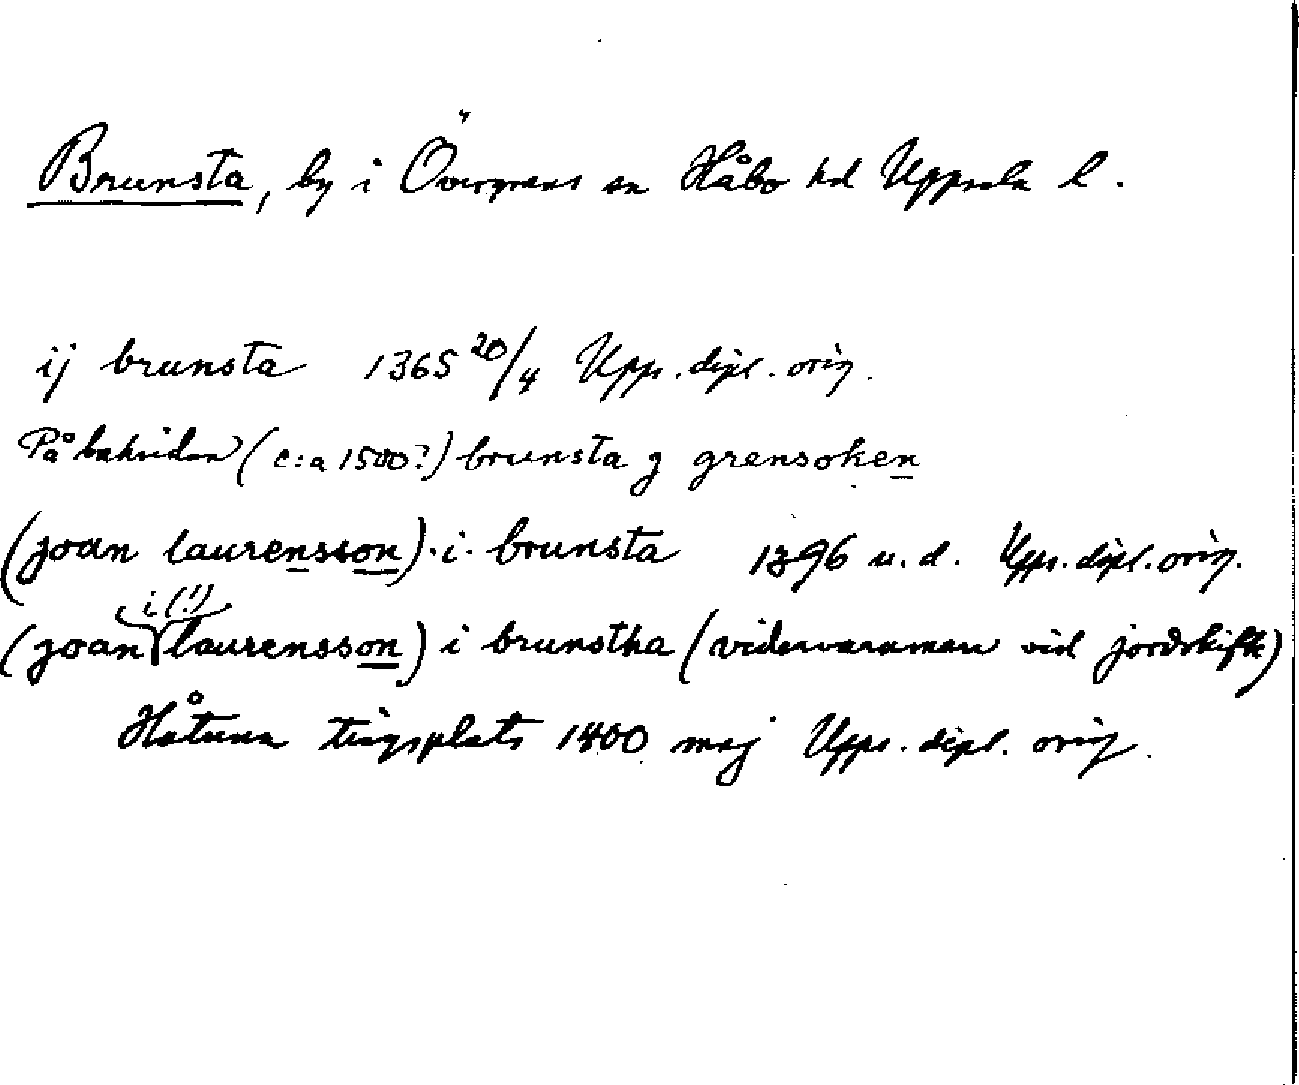 Brunsta, by i Övergrens sn Håbo hd Uppsala l.
ij brunsta 1365 20/4 Upps. dipl. orig.
På baksidan (c:a 1500?) brunsta j grensoken
(joan laurensson) · i · brunsta 1396 u. d. Upps. dipl. orig.
i (!)
(joan laurensson) i brunstha (vidervaruman vid jordskifte)
Håtuna tingsplats 1400 maj Upps. dipl. orig.